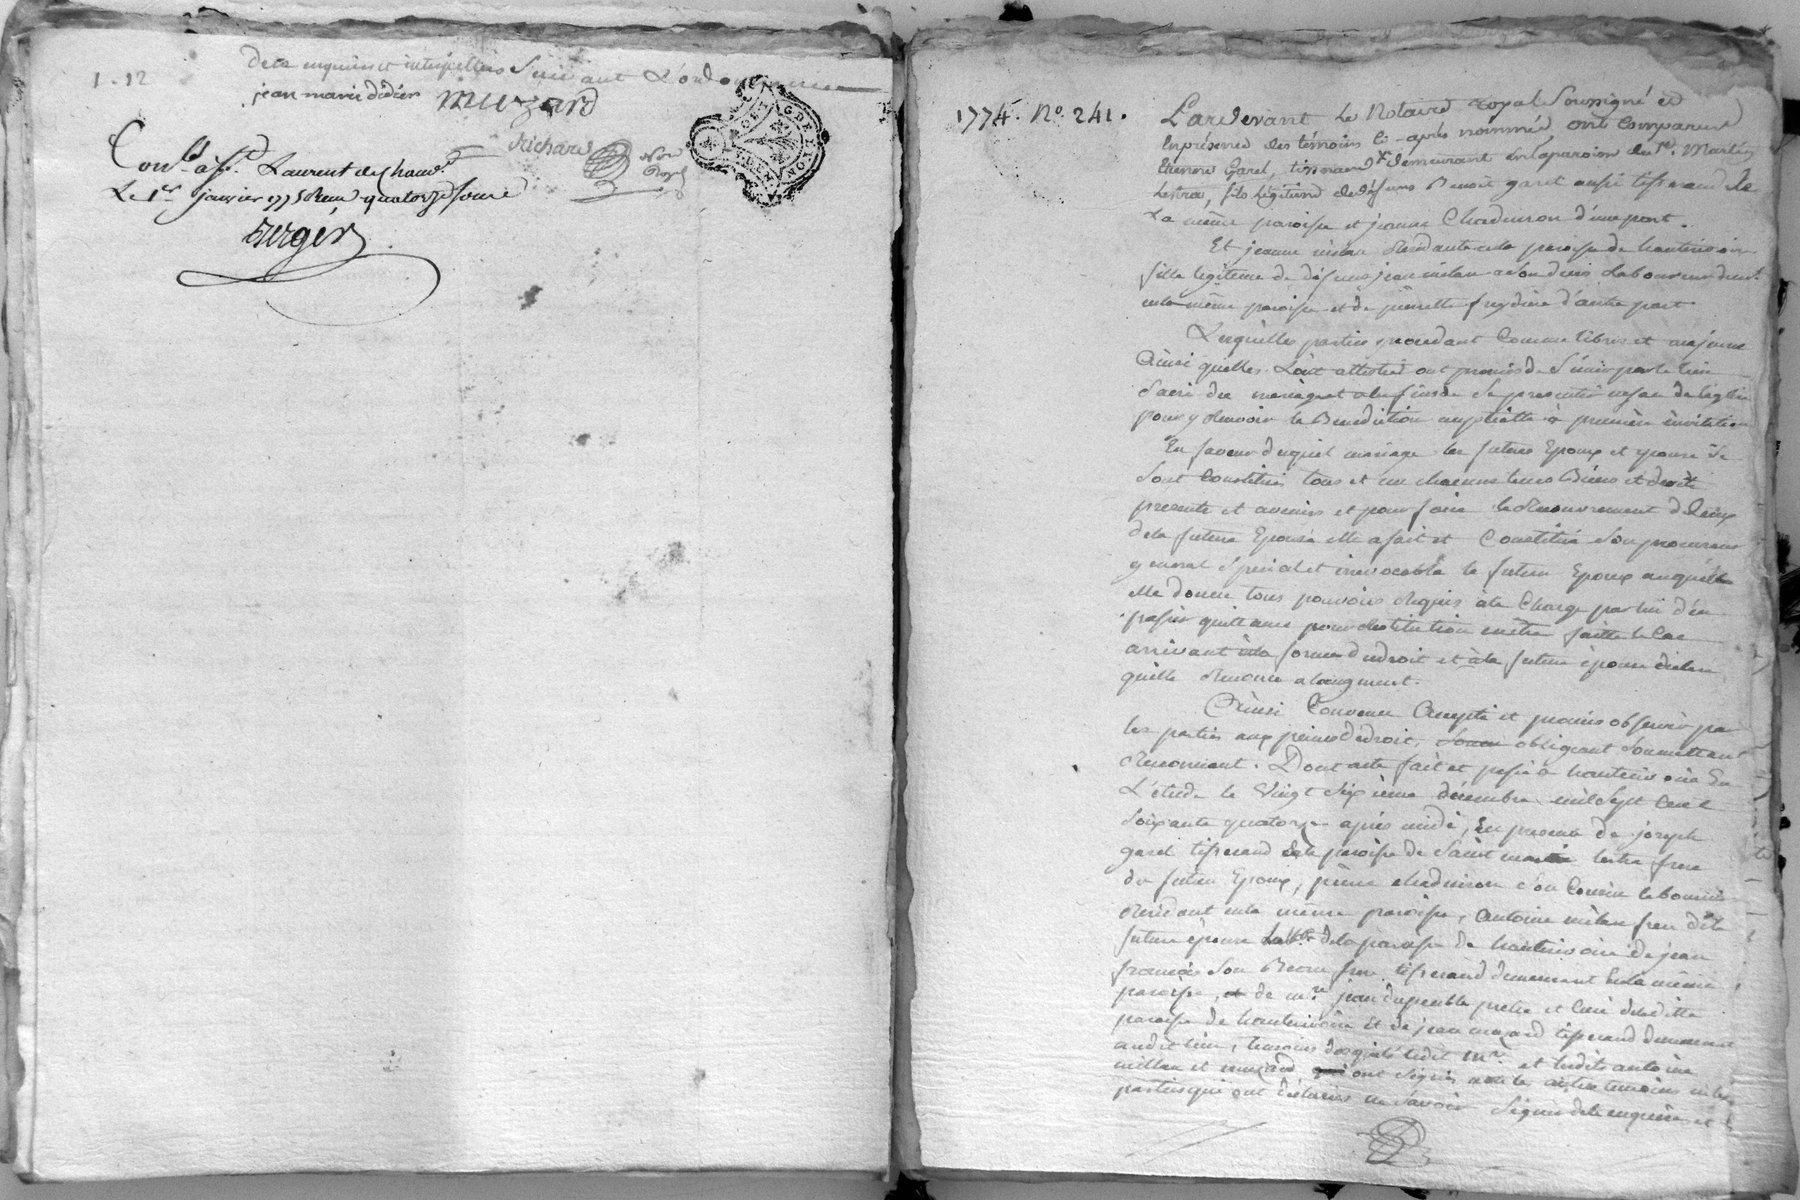 1-12
de ce enquis et interpellés Suivant L'ordonnance
jean marie didier muzard
Richard Nre Royal
GEN DE LYON
Conlé à St Laurent de Chamt
Le 1er janvier 1775 Reçu quatorze sous
Berger
1774. No. 241.
Pardevant Le Notaire royal Soussigné et
En présence des témoins Ci-après nommés, ont Comparu
Etienne Garel, tisserand demeurant en la paroisse de St. Martin
Lestra, fils Légitime de défunt Benoit garel aussi tisserand de
La même paroisse et jeanne Chaduiron d'une part.
Et jeanne milan Residante en la paroisse de hauterivoire
fille legitime de défunt jean milan a son vivant Laboureur demt
en la même paroisse et de pierrette freydiere d'autre part
Lesquelles parties procedant Comme libres et majeures
Ainsi quelles L'ont attesté ont promis de S'unir par le lien
Sacré du mariage et a ces fins de Se presenter en face de l'eglise
pour y Recevoir la Benediction nuptialle à première invitation
En faveur duquel mariage les futurs Epoux et epouse Se
Sont Constitués tous et un chacuns leurs Biens et droits
presents et avenirs et pour faire le Recouvrement de Ceux
de la future Epouse elle a fait et Constitué Son procureur
general Special et irrevocable le futur Epoux auquel
elle donne tous pouvoirs Requis à la Charge par lui d'en
passer quittance pour Restitution en être faitte le Cas
arrivant a la forme du droit et à la future épouse
quelle Renonce a laugment.
Ainsi Convenu Accepté et promis observer par
les parties aux peines de droit, obligeant Soumettant
Renonçant. Dont acte fait et passé à hauterivoire En
L'étude le Vingt Sixième décembre mil Sept Cent
Soixante quatorze après midi, En presence de joseph
garel tisserand de la paroisse de Saint martin lestra frere
du futur Epoux, pierre chaduiron son Cousin laboureur
Residant en la même paroisse, antoine milan frere de la
future épouse Labr de la paroisse de hauterivoire de jean
françois Son Beau frere tisserand demeurant En la même
paroisse, de mre jean dupeuble pretre et Curé de laditte
paroisse de hauterivoire Et de jean muzard tisserand demeurant
audit lieu, temoins desquels ledit Mre et lesdits antoine
millan et muzard ont Signés non les autres temoins ni les
parties qui ont déclarés ne Savoir Signer de ce enquis et